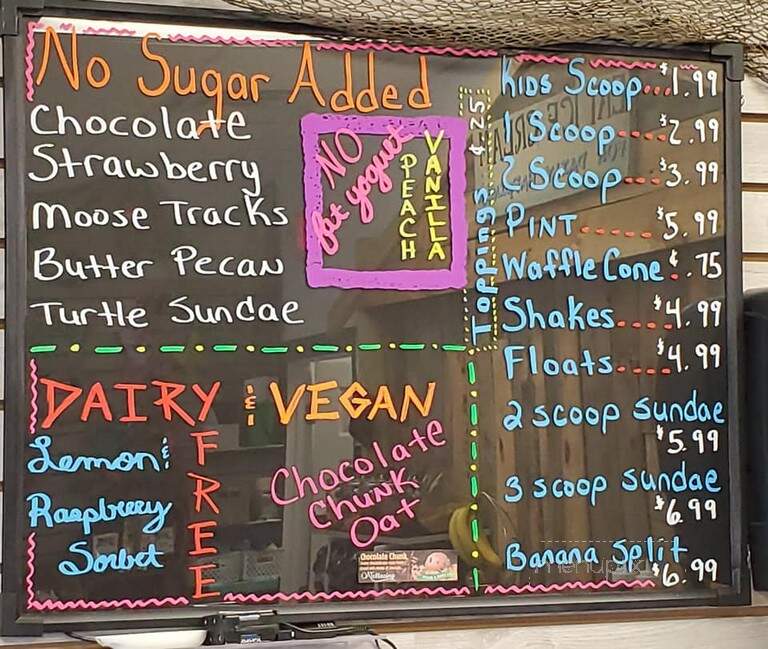 No Sugar Added
Chocolate
Strawberry
Moose Tracks
Butter Pecan
Turtle Sundae
NO
fat yogurt
PEACH
VANILLA
Toppings $.25
Kids Scoop...$1.99
1 Scoop----$2.99
2 Scoop---$3.99
PINT------$5.99
Waffle Cone $.75
Shakes....$4.99
Floats....$4.99
2 scoop sundae
$5.99
3 scoop sundae
$6.99
Banana Split
$6.99
DAIRY & VEGAN
FREE
Lemon &
Raspbrerry
Sorbet
Chocolate
Chunk
Oat
Chocolate Chunk
menupix